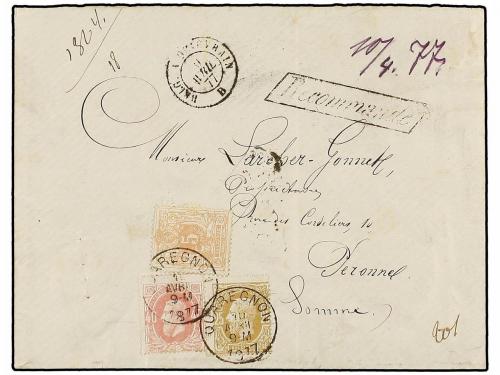 1864.
18
BELG. A QUIEVRAIN
AVRIL
77
B
10/4. 77.
Recommandé
Monsieur Larcher-Gonnet
Propriétaire
Rue des Cordeliers, 10
Peronne
Somme.
5
QUAREGNON
AVRIL
9-M
1877
QUAREGNON
10
AVRIL
9-M
1877